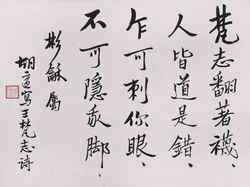 梵志翻著襪、
人皆道是錯、
乍可刺你眼、
不可隱我脚、
彬龢屬
胡適寫王梵志詩